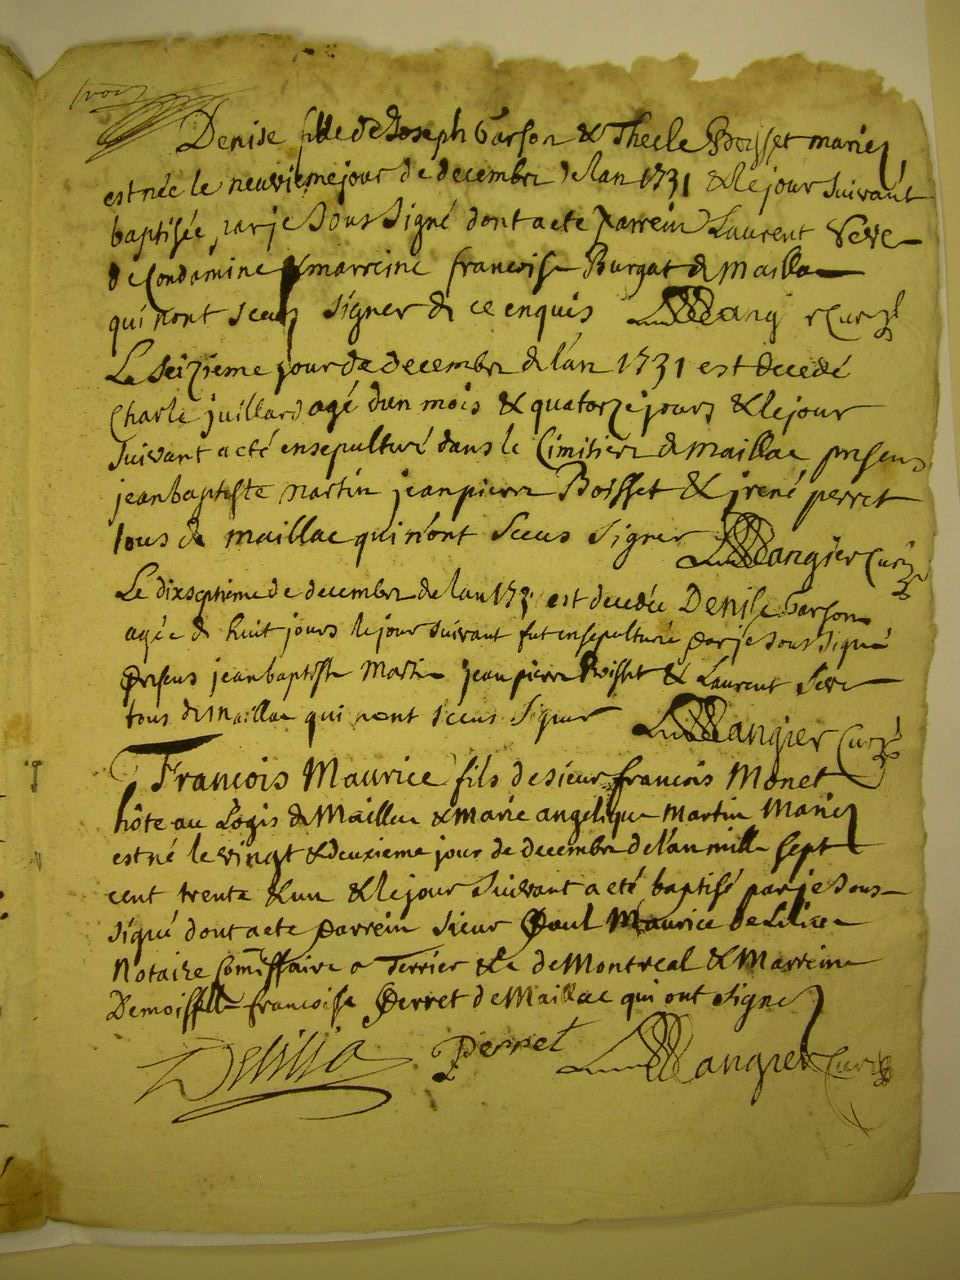 Denise fille de Joseph Garson & Thecle Boisset mariez
est née le neuvieme jour de decembre de lan 1731 & le jour suivant
baptisée par je sous signé dont acte parrein Laurent Seve
de Condamine & marreine francoise Burgat de Maillac
qui nont sceus signer de ce enquis Mangier Curé
Le seizieme jour de decembre de l'an 1731 est decedé
Charle juillard agé d'un mois & quatorze jours & le jour
suivant a eté ensepulturé dans le Cimitiere de Maillac presens
jean baptiste martin jean pierre Boisset & jrené perret
tous de maillac qui n'ont sceus signer Mangier Curé
Le dixseptieme de decembre de lan 173 est decedée Denise Garson
agée de huit jours le jour suivant fut ensepulturée par je sous signé
presens jean baptiste Martin jean pierre Boisset & Laurent Seve
tous de Maillac qui nont sceus signer Mangier Curé
Francois Maurice fils de sieur francois Monet
hôte au Logis de Maillac & Marie angelique Martin Mariez
est né le vingt & deuxieme jour de decembre de l'an mille sept
cent trente & un & le jour suivant a eté baptisé par je sous
signé dont acte parrein sieur Paul Maurice de Lilia
Notaire Commissaire a Terrier & de Montreal & Marreine
Demoiselle francoise Perret de Maillac qui ont signez
Delilia Perret Mangier Curé